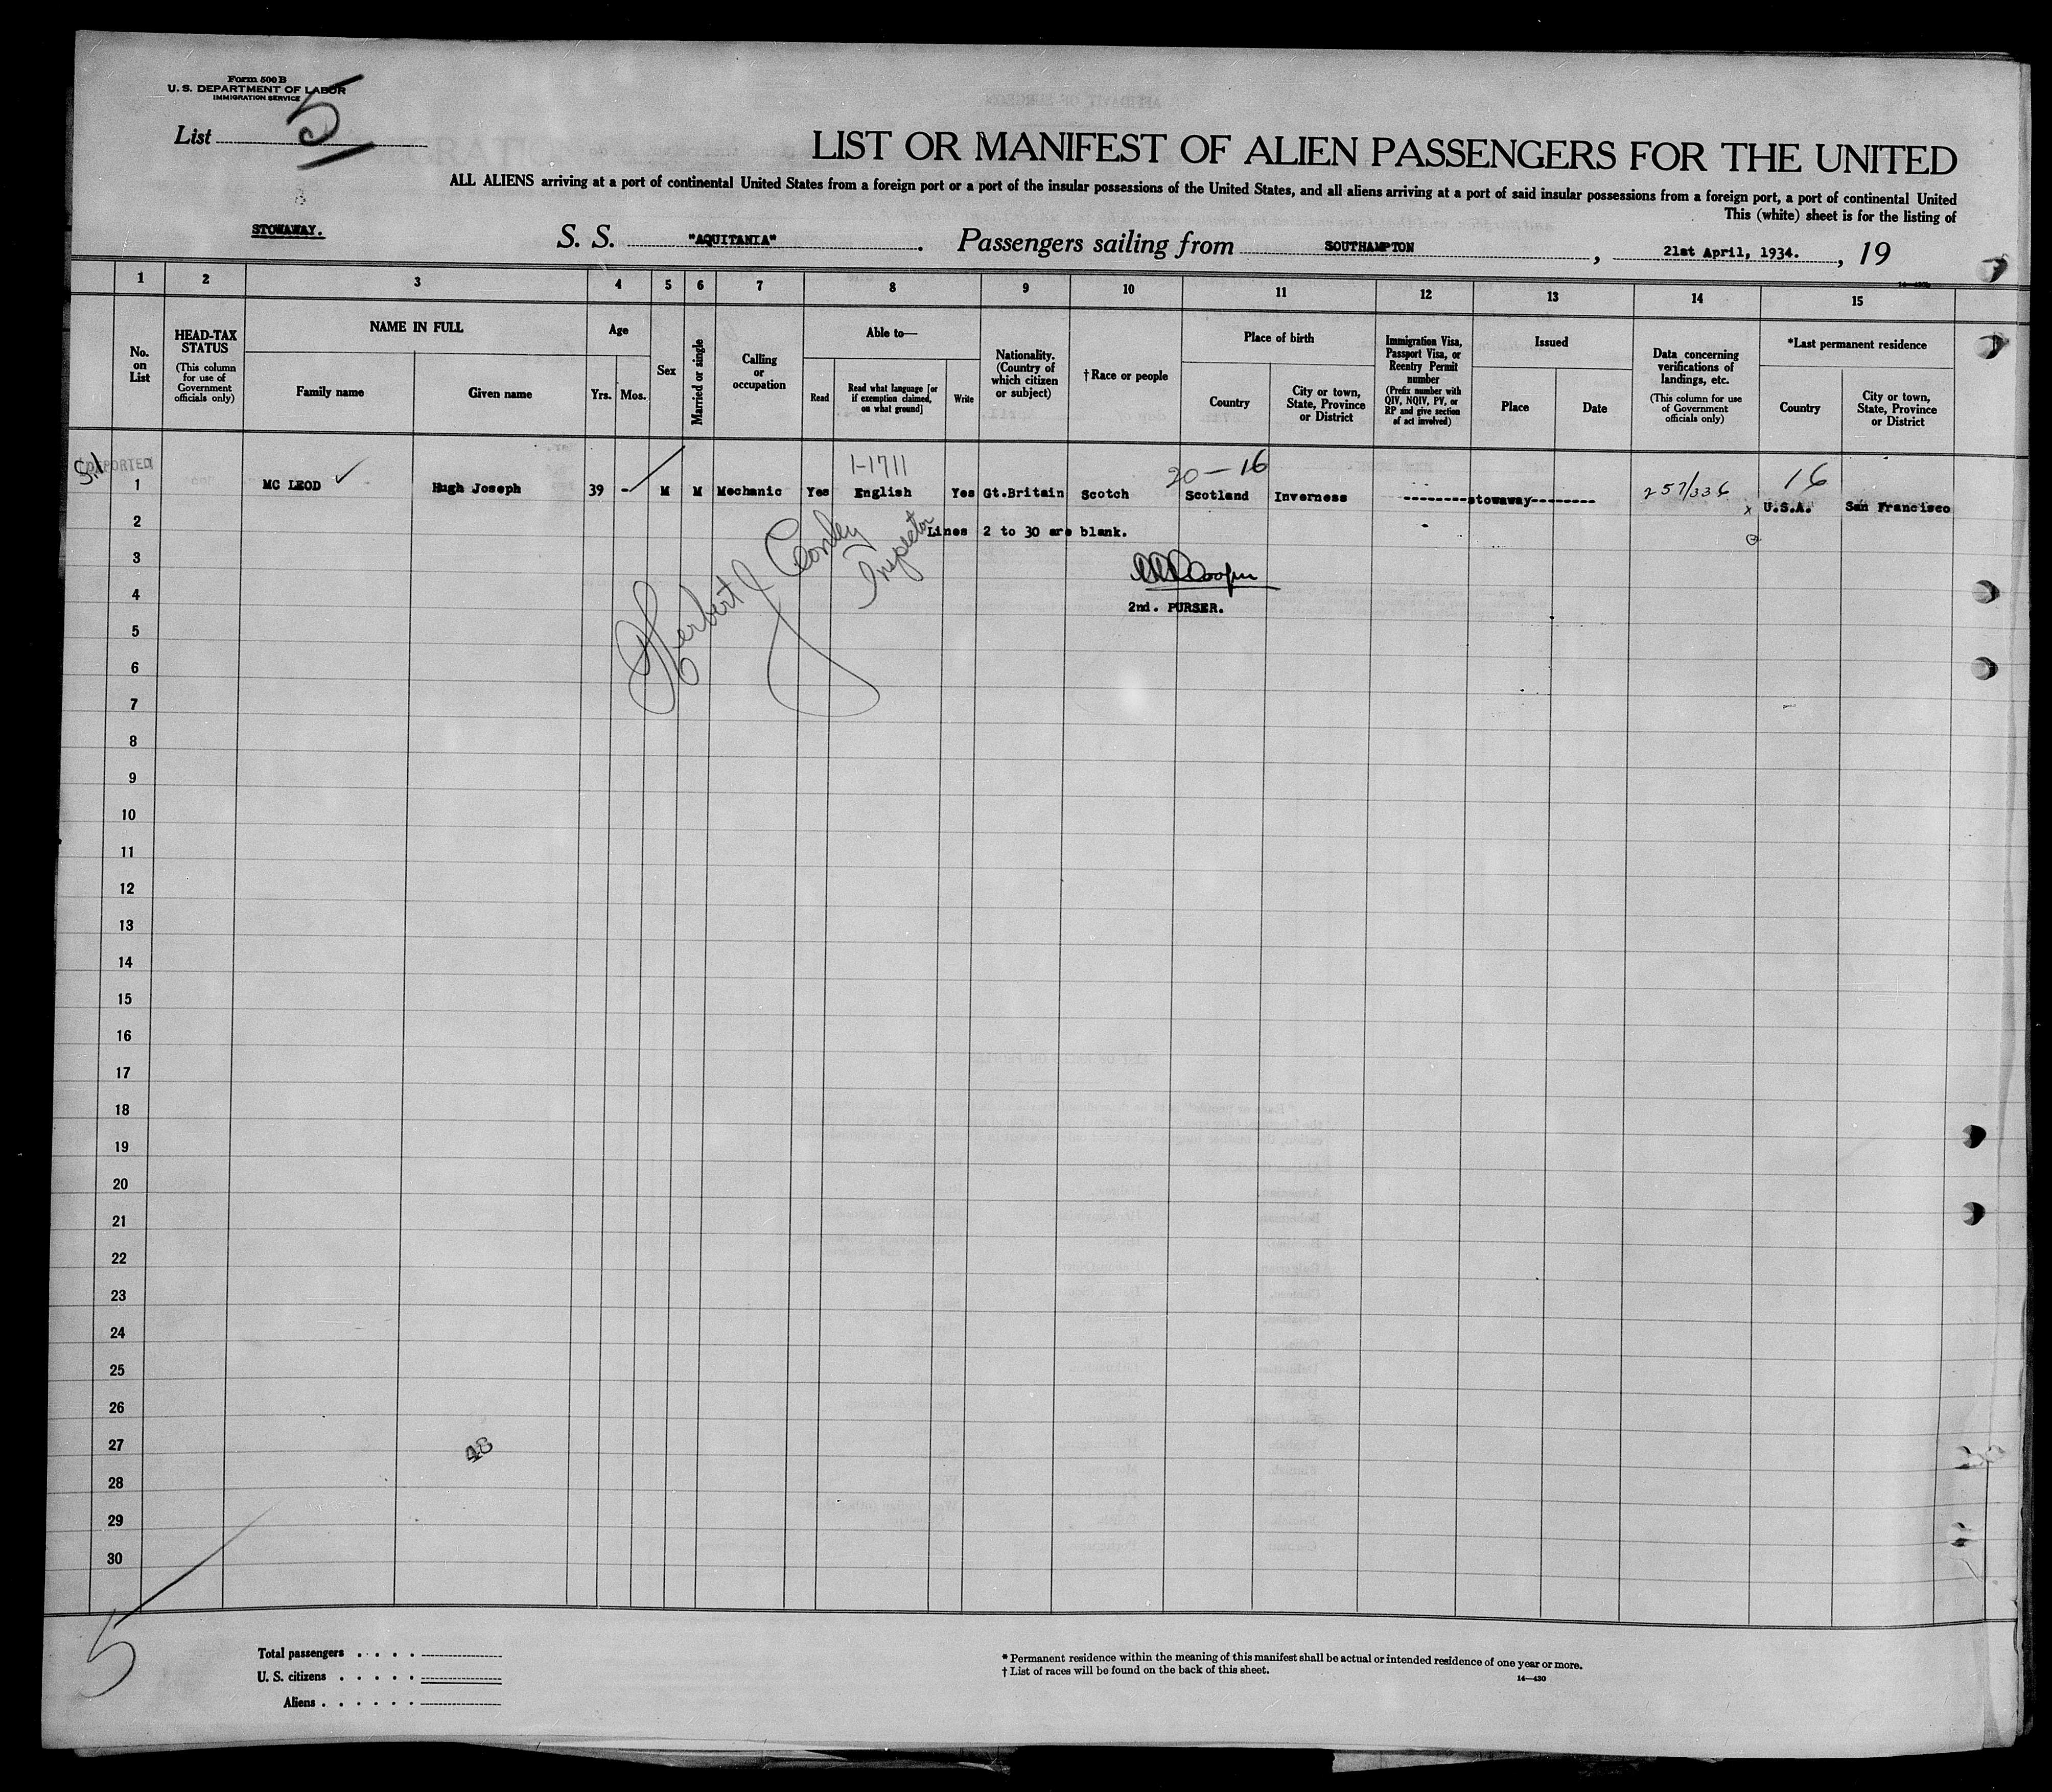 Form 500 B
U. S. DEPARTMENT OF LABOR
IMMIGRATION SERVICE
List 5
LIST OR MANIFEST OF ALIEN PASSENGERS FOR THE UNITED
ALL ALIENS arriving at a port of continental United States from a foreign port or a port of the insular possessions of the United States, and all aliens arriving at a port of said insular possessions from a foreign port, a port of continental United
This (white) sheet is for the listing of
STOWAWAY.
S. S. "AQUITANIA". Passengers sailing from SOUTHAMPTON, 21st April, 1934., 19
1 2 3 4 5 6 7 8 9 10 11 12 13 14 15
No. on List
HEAD-TAX STATUS
(This column for use of Government officials only)
NAME IN FULL
Family name
Given name
Age
Yrs.
Mos.
Sex
Married or single
Calling or occupation
Able to—
Read
Read what language [or if exemption claimed, on what ground]
Write
Nationality. (Country of which citizen or subject)
†Race or people
Place of birth
Country
City or town, State, Province or District
Immigration Visa, Passport Visa, or Reentry Permit number
(Prefix number with QIV, NQIV, PV, or RP and give section of act involved)
Issued
Place
Date
Data concerning verifications of landings, etc.
(This column for use of Government officials only)
*Last permanent residence
Country
City or town, State, Province or District
DEPORTED
1-1711
20-16
16
1 MC LEOD Hugh Joseph 39 - M M Mechanic Yes English Yes Gt.Britain Scotch Scotland Inverness --------stowaway-------- 257/336 x U.S.A. San Francisco
2 Lines 2 to 30 are blank.
3
Herbert J Conley
Inspector
Cooper
4 2nd. PURSER.
5
6
7
8
9
10
11
12
13
14
15
16
17
18
19
20
21
22
23
24
25
26
27
48
28
29
30
5
Total passengers . . . .
U. S. citizens . . . . .
Aliens . . . . . .
* Permanent residence within the meaning of this manifest shall be actual or intended residence of one year or more.
† List of races will be found on the back of this sheet.
14—430